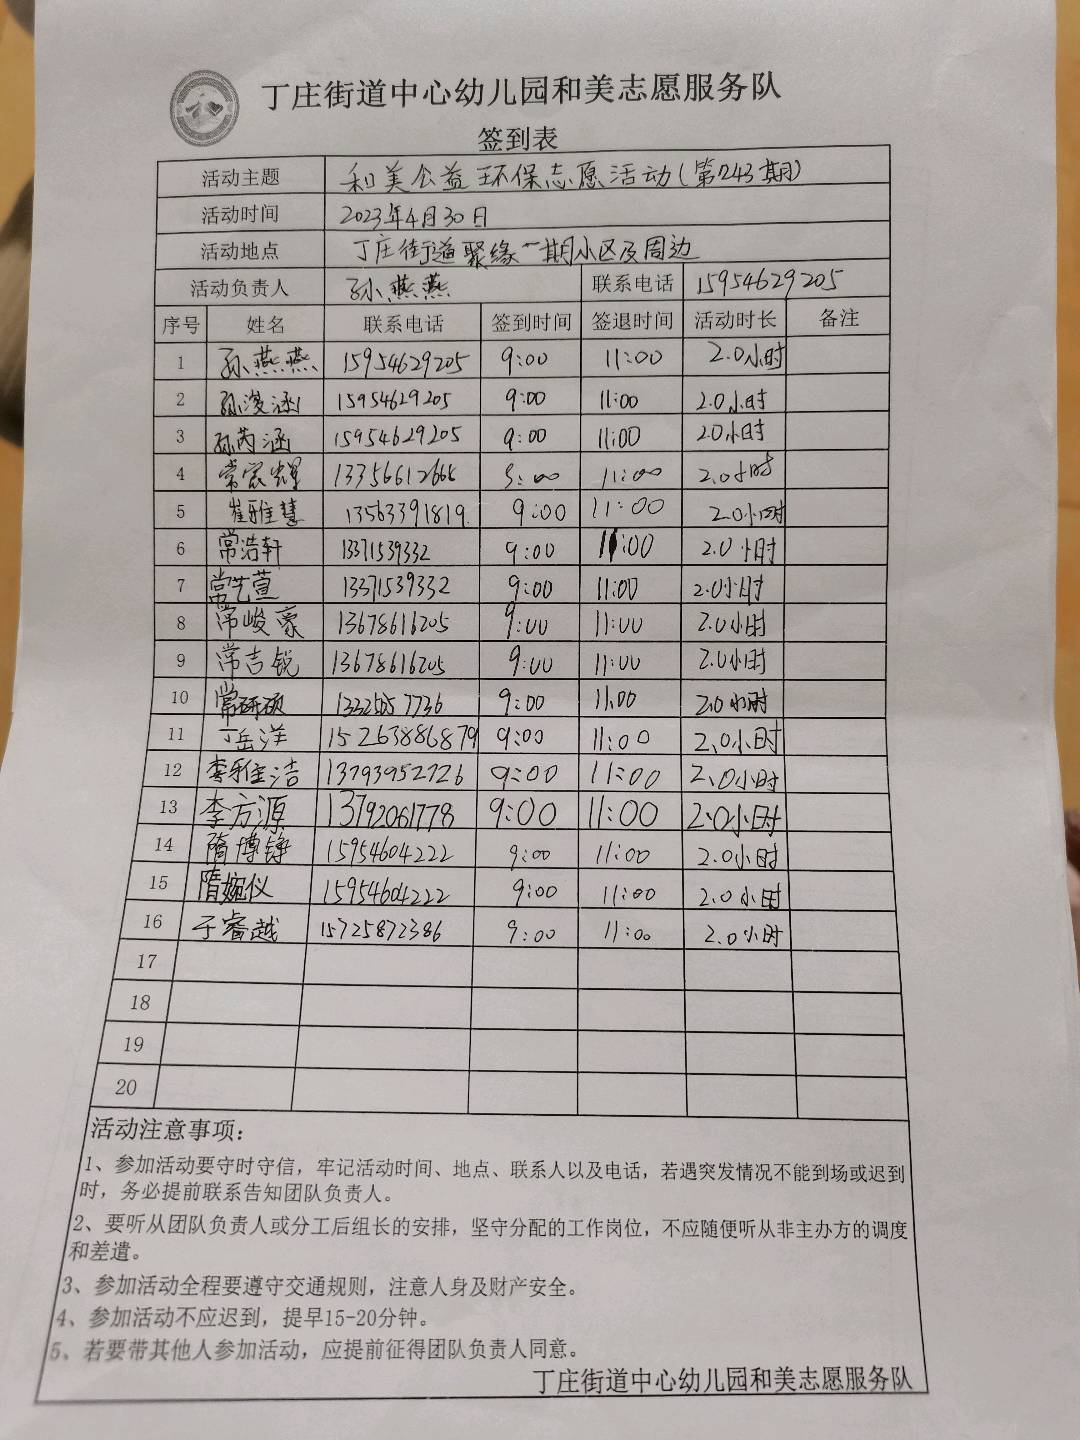 丁庄街道中心幼儿园和美志愿服务队
签到表
活动主题 和美公益环保志愿活动(第243期)
活动时间 2023年4月30日
活动地点 丁庄街道聚缘一期小区及周边
活动负责人 孙燕燕 联系电话 15954629205
序号 姓名 联系电话 签到时间 签退时间 活动时长 备注
1 孙燕燕 15954629205 9:00 11:00 2.0小时
2 孙浚涵 15954629205 9:00 11:00 2.0小时
3 孙芮涵 15954629205 9:00 11:00 20小时
4 常家辉 13356612666 9:00 11:00 2.0小时
5 崔雅慧 13563391819 9:00 11:00 2.0小时
6 常浩轩 13371539332 9:00 11:00 2.0小时
7 常艺萱 13371539332 9:00 11:00 2.0小时
8 常峻豪 13678616205 9:00 11:00 2.0小时
9 常吉锐 13678616205 9:00 11:00 2.0小时
10 常研硕 9:00 11:00 2.0小时
11 丁岳洋 15263886879 9:00 11:00 2.0小时
12 李雅洁 13793952726 9:00 11:00 2.0小时
13 李方源 13792061778 9:00 11:00 2.0小时
14 隋博铮 15954604222 9:00 11:00 2.0小时
15 隋婉仪 15954604222 9:00 11:00 2.0小时
16 于睿越 15725872386 9:00 11:00 2.0小时
17
18
19
20
活动注意事项：
1、参加活动要守时守信，牢记活动时间、地点、联系人以及电话，若遇突发情况不能到场或迟到
时，务必提前联系告知团队负责人。
2、要听从团队负责人或分工后组长的安排，坚守分配的工作岗位，不应随便听从非主办方的调度
和差遣。
3、参加活动全程要遵守交通规则，注意人身及财产安全。
4、参加活动不应迟到，提早15-20分钟。
5、若要带其他人参加活动，应提前征得团队负责人同意。
丁庄街道中心幼儿园和美志愿服务队